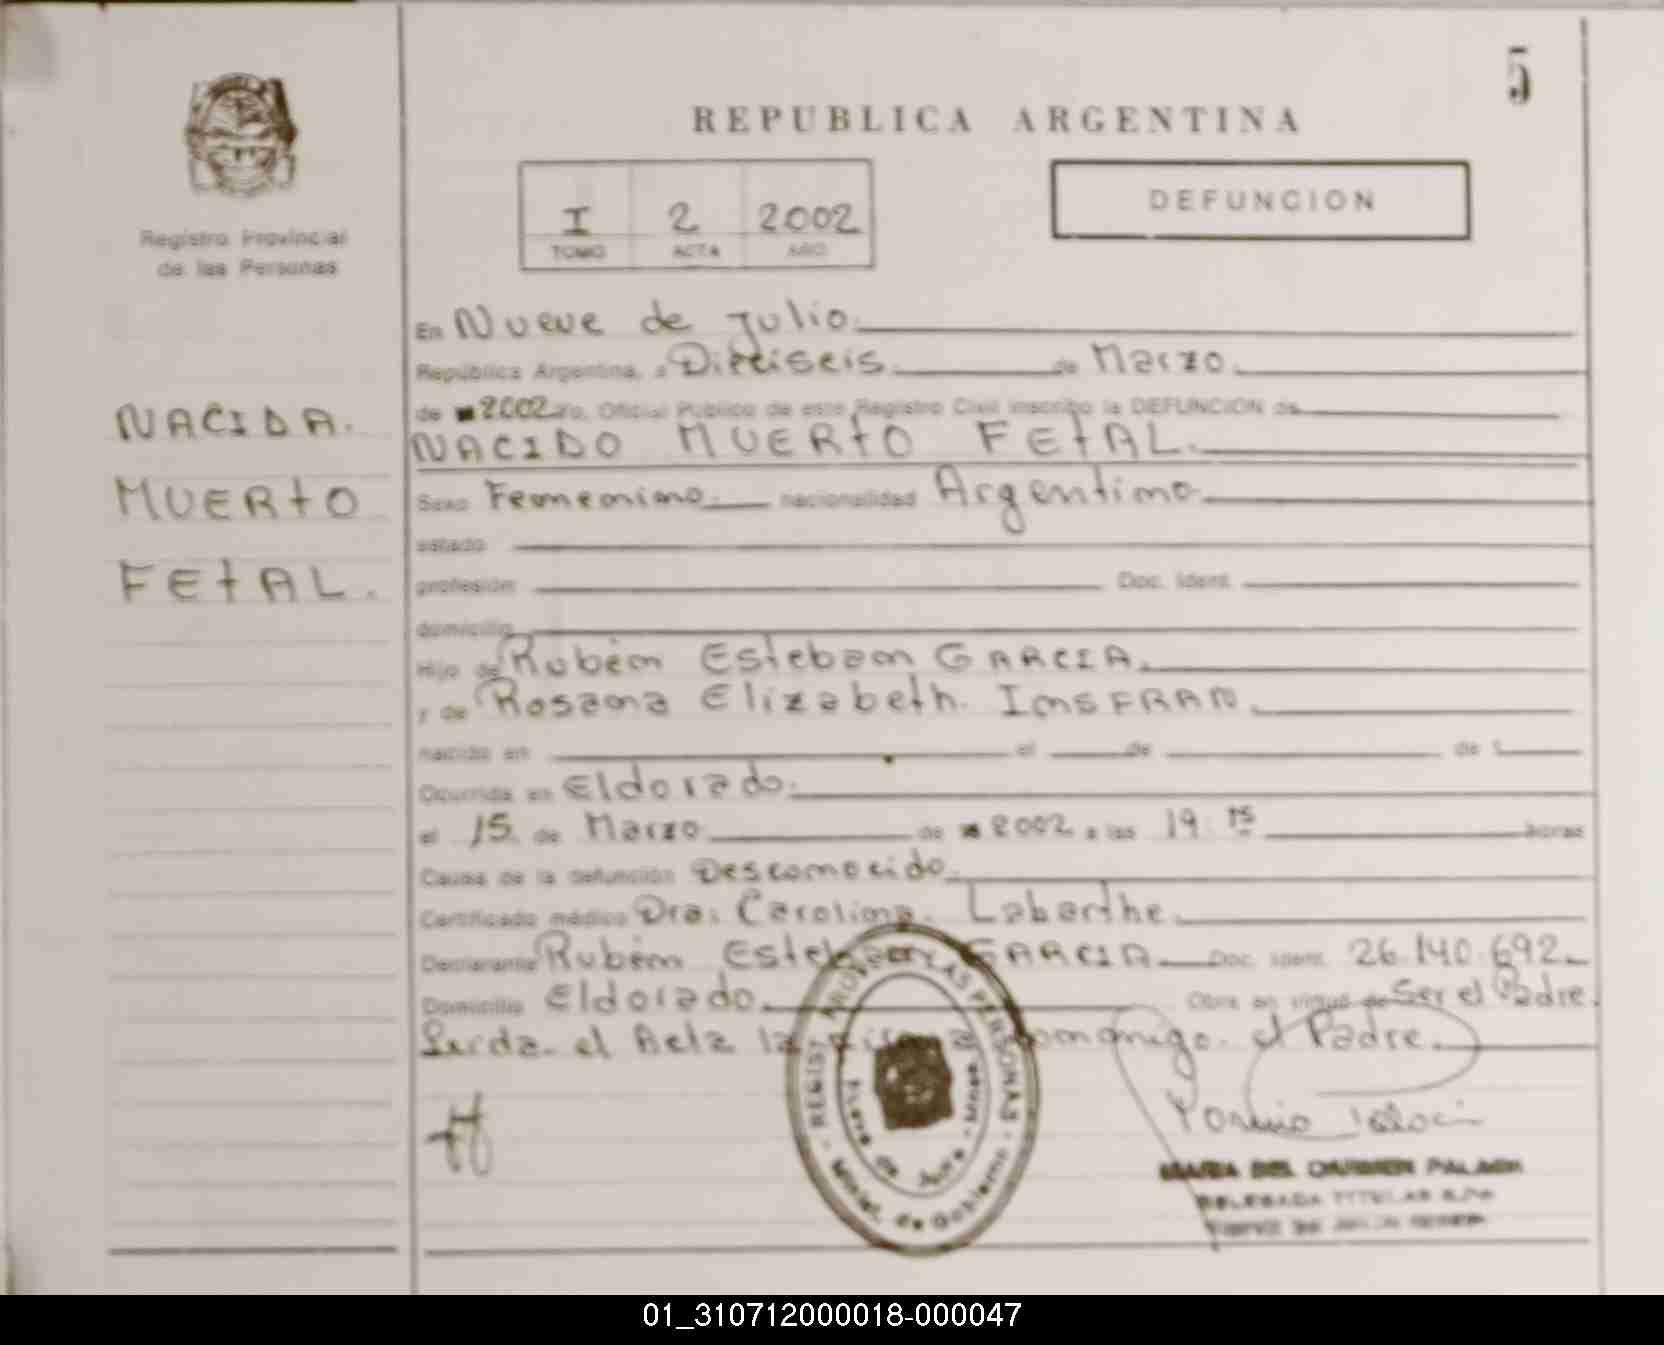 5
REPUBLICA ARGENTINA
I 2 2002
TOMO ACTA AÑO
DEFUNCION
Registro Provincial
de las Personas
NACIDA.
MUERtO
FEtAL.
En Nueve de Julio.
República Argentina, a Dieciseis. de Marzo.
de 2002 Yo, Oficial Público de este Registro Civil inscribo la DEFUNCION de
NACIDO MUERtO FEtAL.
Sexo Femenino. nacionalidad Argentino.
estado
profesión Doc. Ident.
domicilio
Hijo de Rubén Esteban GARCIA.
y de Rosana Elizabeth. InsFRAN.
nacido en el de de 1
Ocurrida en Eldorado.
el 15. de Marzo de 2002 a las 19:15 horas
Causa de la defunción Desconocido.
Certificado médico Dra: Carolina. Labarthe.
Declarante Rubén Esteban GARCIA Doc. Ident. 26.140.692
Domicilio Eldorado. Obra en virtud de Ser el Padre.
el Acta la conmigo. el Padre.
REGIST. PROV. DE LAS PERSONAS
Minist. de Gobierno
Nueve de Julio - Mnes.
MARIA DEL CARMEN PALACI
DELEGADA TITULAR
01_310712000018-000047